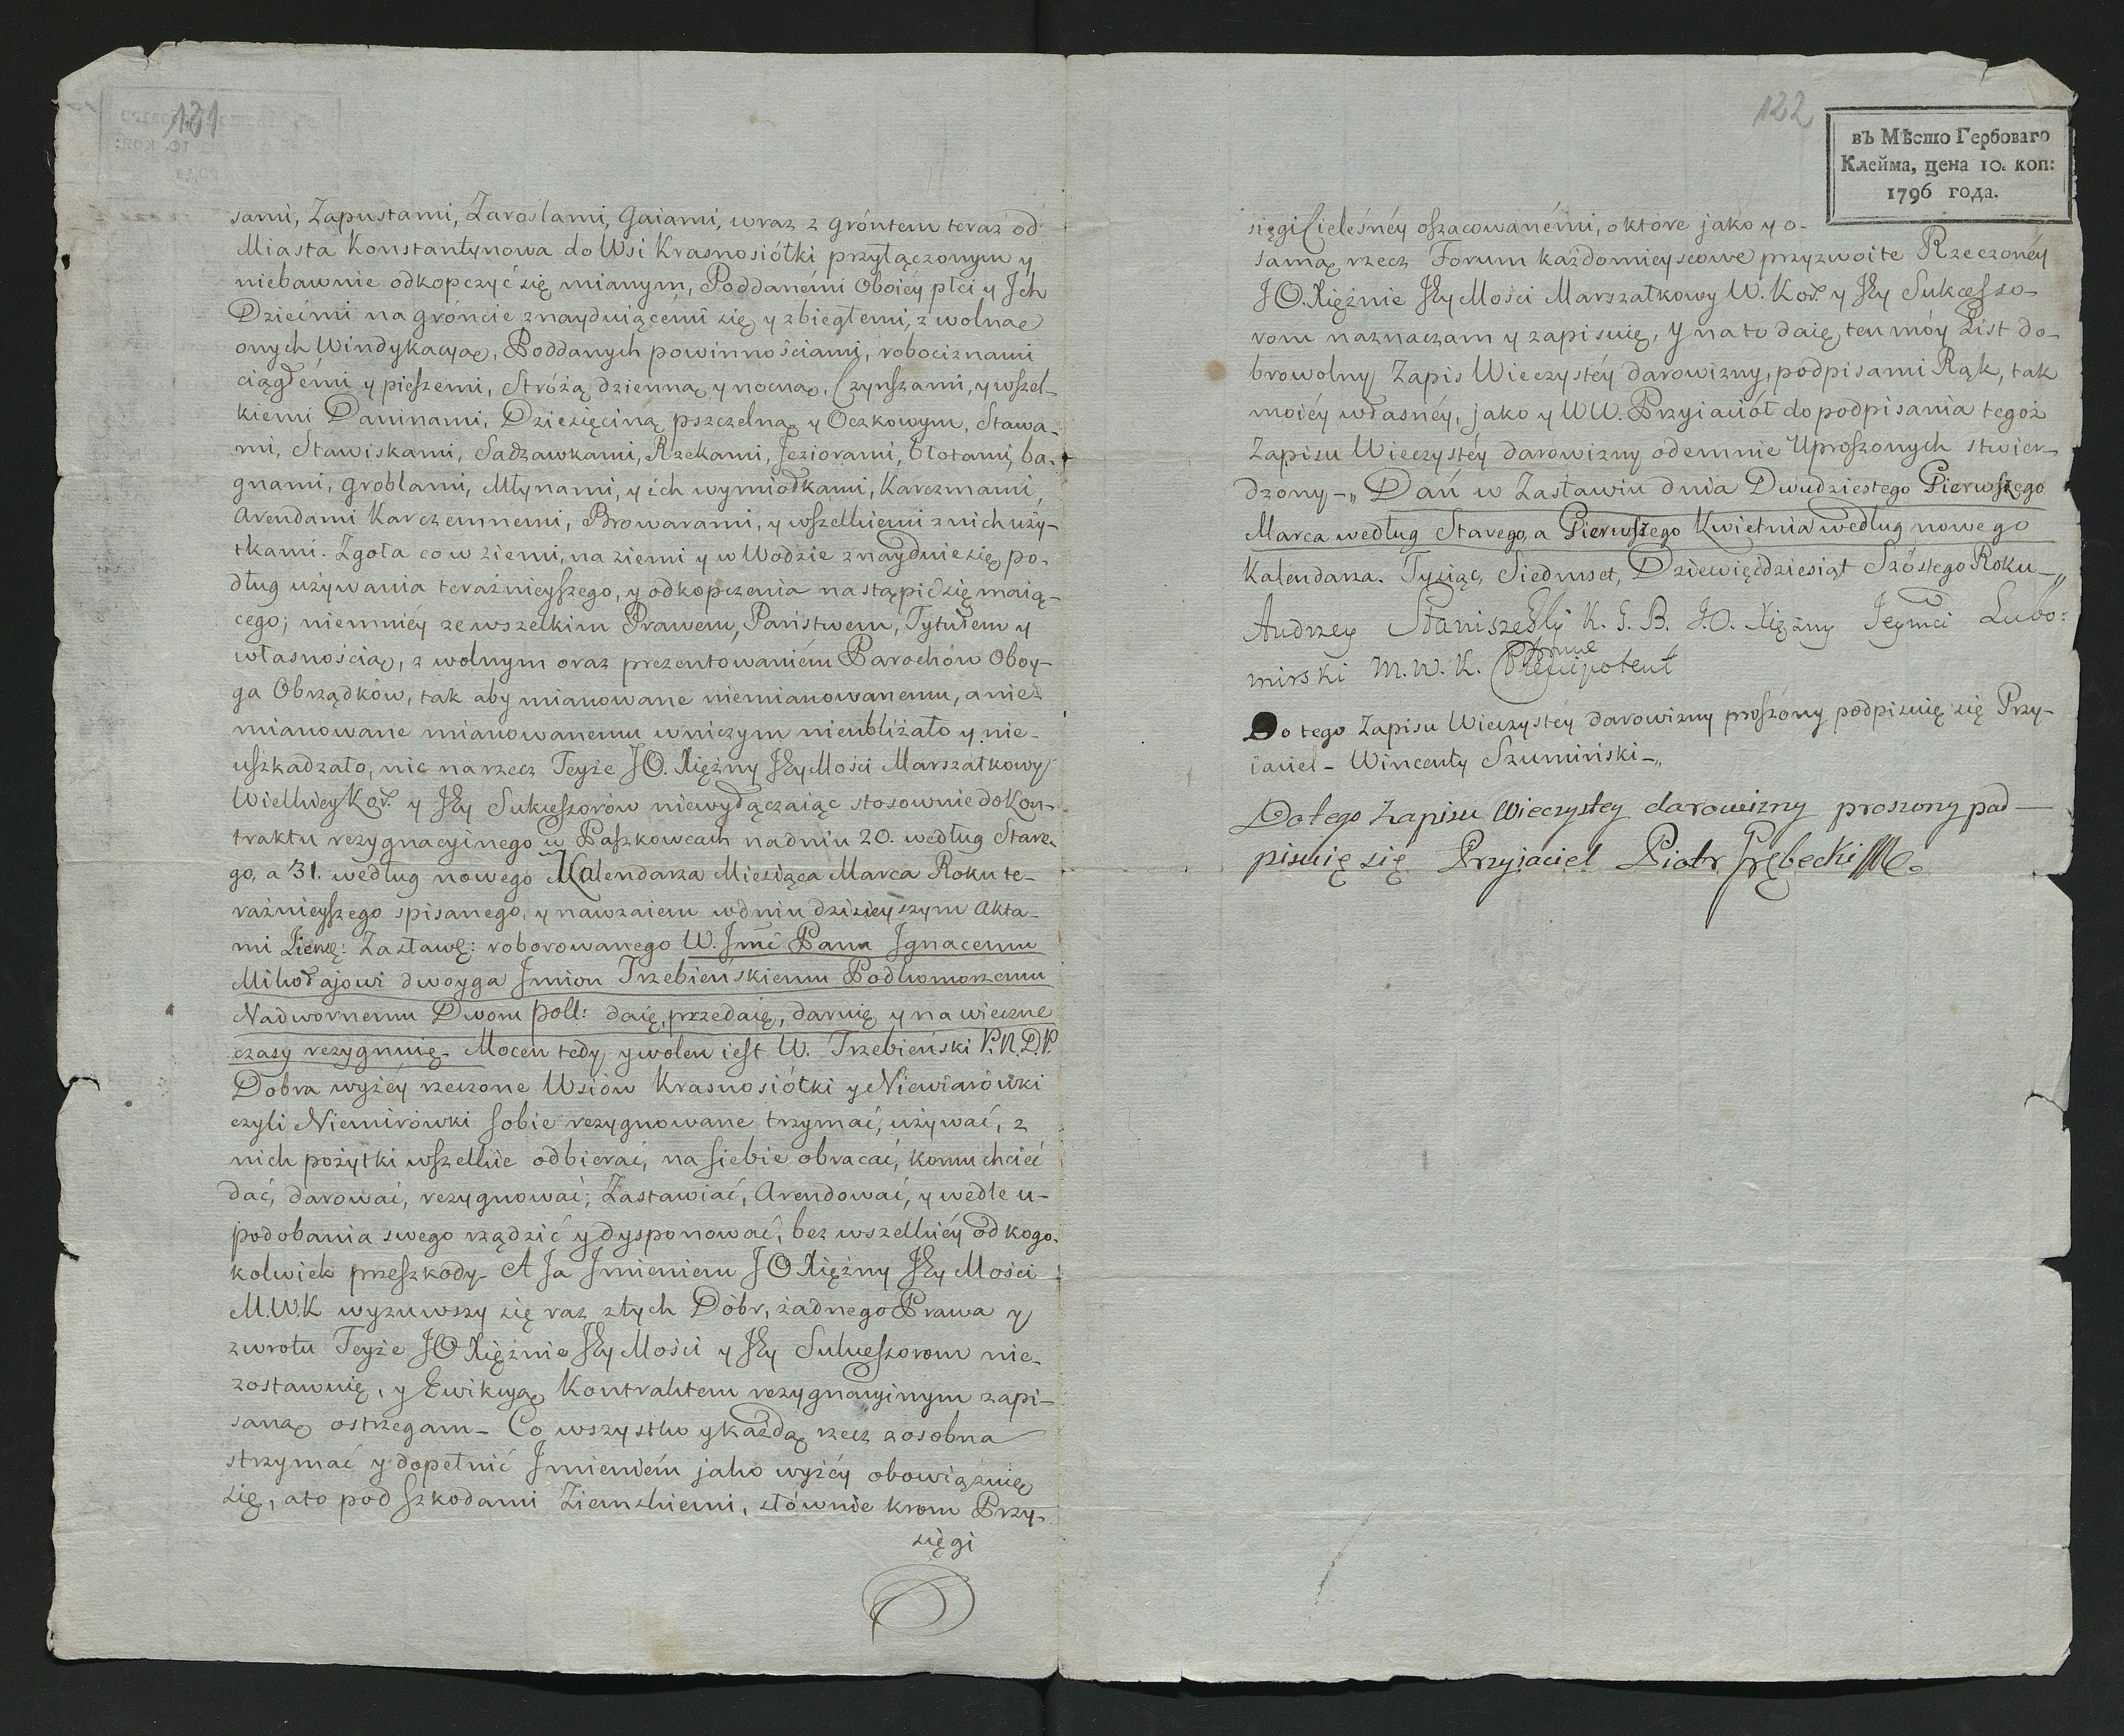 121
sami, Zapustami, Zaroslami, Gaiami, wraz z gróntem teraz od
Miasta Konstantynowa do Wsi Krasnosiółki przyłączonym y
niebawnie odkopczyć się mianym, Poddanémi Oboiéy płci y Jch
Dziećmi na gróncie znayduiącemi się y zbiegłemi, z wolną
onych Windykacyą, Poddanych powinnościami, robociznami
ciągłémi y pieszemi, Stróżą dzienną y nocną, Czynszami, y wszel-
kiemi Daninami, Dziesięciną pszczelną y Oczkowym, Stawa-
mi, Stawiskami, Sadzawkami, Rzekami, Jeziorami, błotami, ba-
gnami, groblami, Młynami, y ich wymiołkami, Karczmami,
Arendami Karczemnemi, Browarami, y wszelkiemi z nich uży-
tkami. Zgoła co w ziemi, na ziemi y w Wodzie znayduie się po-
dług używania teraźnieyszego, y odkopczenia nastąpić się maią-
cego; niemniéy ze wszelkim Prawem, Państwem, Tytułem y
własnością, z wolnym oraz prezentowaniém Parochów Oboy-
ga Obrządków, tak aby mianowane niemianowanemu, a nie-
mianowane mianowanemu w niczym nieubliżało y nie-
uszkadzało, nic na rzecz Teyże JO. Xiężny JEy Mości Marszałkowy
Wielkiey Kor. y JEy Sukcessorów niewyłączaiąc stosownie do Kon-
traktu rezygnacyinego w Paszkowcach na dniu 20. według Stare-
go, a 31. według nowego Kalendarza Miesiąca Marca Roku te-
raźnieyszego spisanego, y nawzaiem w dniu dzisieyszym Akta-
mi Ziemę: Zastawę: roborowanego W. Jmć Panu Jgnacemu
Mikołajowi dwoyga Jmion Trzebieńskiemu Podkomorzemu
Nadwornemu Dworu poll: daię, przedaię, daruię y na wieczne
czasy rezygnuię - Mocen tedy, y wolen iest W. Trzebieński P.N.D.P.
Dobra wyżéy rzeczone Wsiów Krasnosiółki y Niewiarówki
czyli Niemirówki sobie rezygnowane trzymać, używać, z
nich pożytki wszelkie odbierać, na siebie obracać, komu chcieć
dać, darować, rezygnować, Zastawiać, Arendować, y wedle u-
podobania swego rządzić y dysponować, bez wszelkiéy od kogo-
kolwiek przeszkody - A Ja Jmieniem JO Xiężny JEy Mości
M.W.K wyzuwszy się raz z tych Dóbr, żadnego Prawa y
zwrotu Teyże JO Xiężnie JEy Mości y JEy Sukcessorom nie-
zostawuię, y Ewikcyą Kontraktem rezygnacyinym zapi-
saną ostrzegam - Co wszystko y każdą rzecz z osobna
strzymać y dopełnić Jmieniém jako wyżéy obowiązuię
się, a to pod szkodami Ziemskiemi, słównie krom Przy-
sięgi
122
въ Мѣсто Гербоваго
Клейма, цена 10. коп:
1796 года.
sięgi Cieleśnéy oszacowanémi, o które jako y o-
samą rzecz Forum każdomieyscowe przyzwoite Rzeczonéy
JO. Xiężnie JEy Mości Marszałkowy W. Kor. y JEy Sukcesso-
rom naznaczam y zapisuię, y na to daię ten móy List do-
browolny Zapis Wieczystéy darowizny, podpisami Rąk, tak
moiéy własnéy, jako y WW. Przyiaciół do podpisania tegoż
Zapisu Wieczystéy darowizny odemnie Uproszonych stwier-
dzony -,, Dań w Zasławiu dnia Dwudziestego Pierwszego
Marca według Starego, a Pierwszego Kwietnia według nowego
Kalendarza. Tysiąc, Siedmset, Dziewięćdziesiąt Szóstego Roku -,,
Andrzey K. G. B. J.O. Xiężny Jeymci Lubo:
mirski M.W.K. Plenipotent
Do tego Zapisu Wieczystéy darowizny proszony podpisuię się Przy-
iaciel - Wincenty Szumiński -,,
Do tego Zapisu Wieczystey darowizny proszony pod-
pisuię się Przyjaciel Piotr